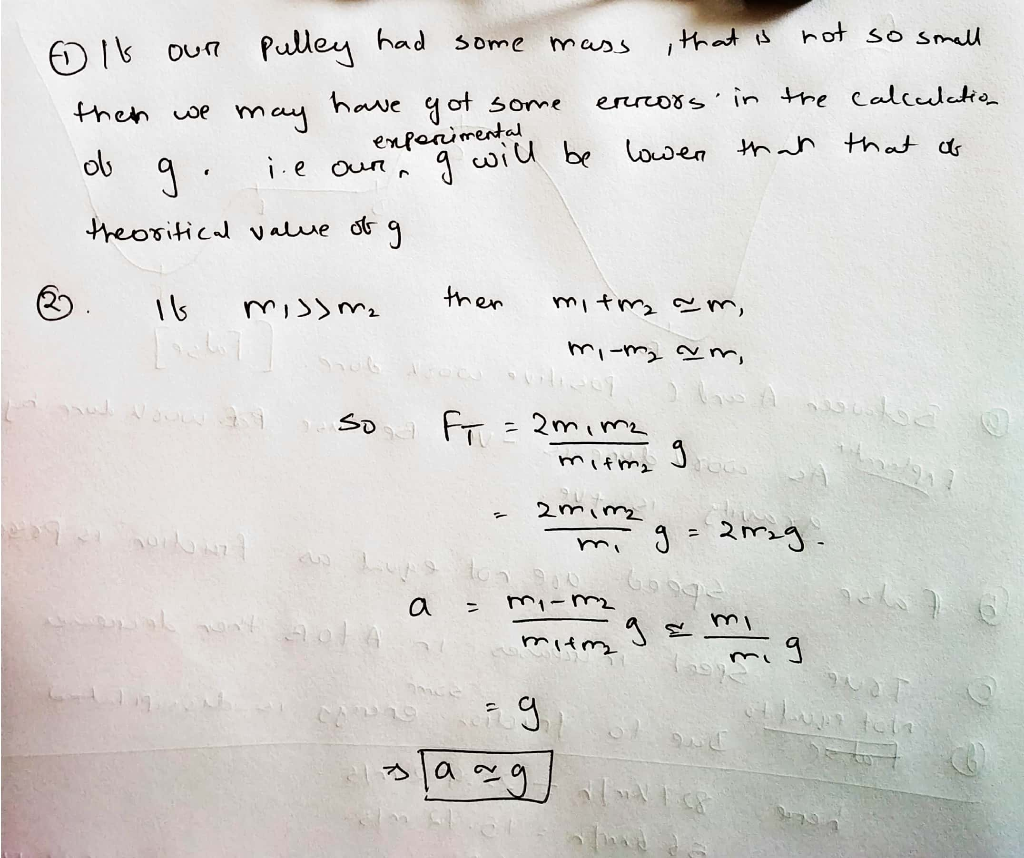 ① If our pulley had some mass, that is not so small
then we may have got some errors in the calculation
of g. i.e our experimental g will be lower than that of
theoritical value of g
②. If m₁>>m₂ then m₁+m₂ ≃ m₁
m₁-m₂ ≃ m₁
so F_T = 2m₁m₂/m₁+m₂ g
= 2m₁m₂/m₁ g = 2m₂g.
a = m₁-m₂/m₁+m₂ g ≃ m₁/m₁ g
= g
⇒ a ≃ g